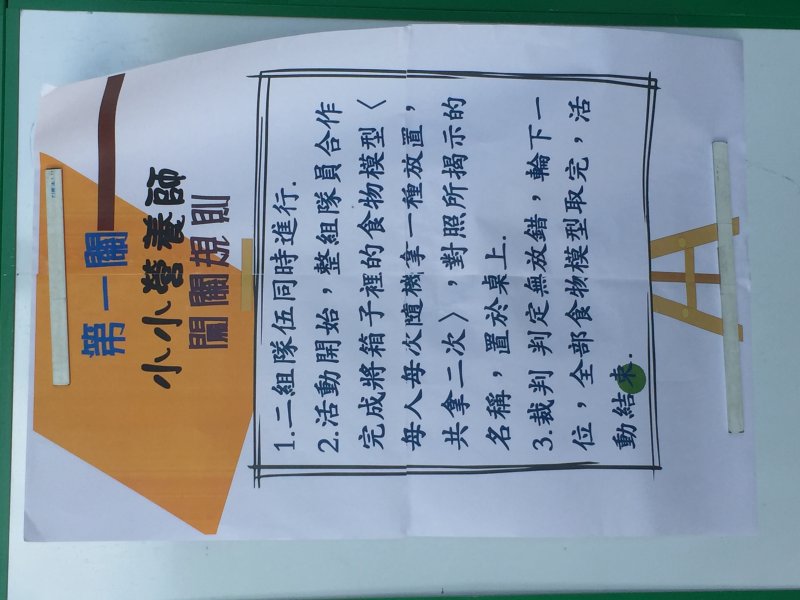 第一關
小小營養師
闖關規則
1.二組隊伍同時進行.
2.活動開始，整組隊員合作
完成將箱子裡的食物模型〈
每人每次隨機拿一種放置，
共拿二次〉，對照所揭示的
名稱，置於桌上.
3.裁判 判定無放錯，輪下一
位，全部食物模型取完，活
動結束.